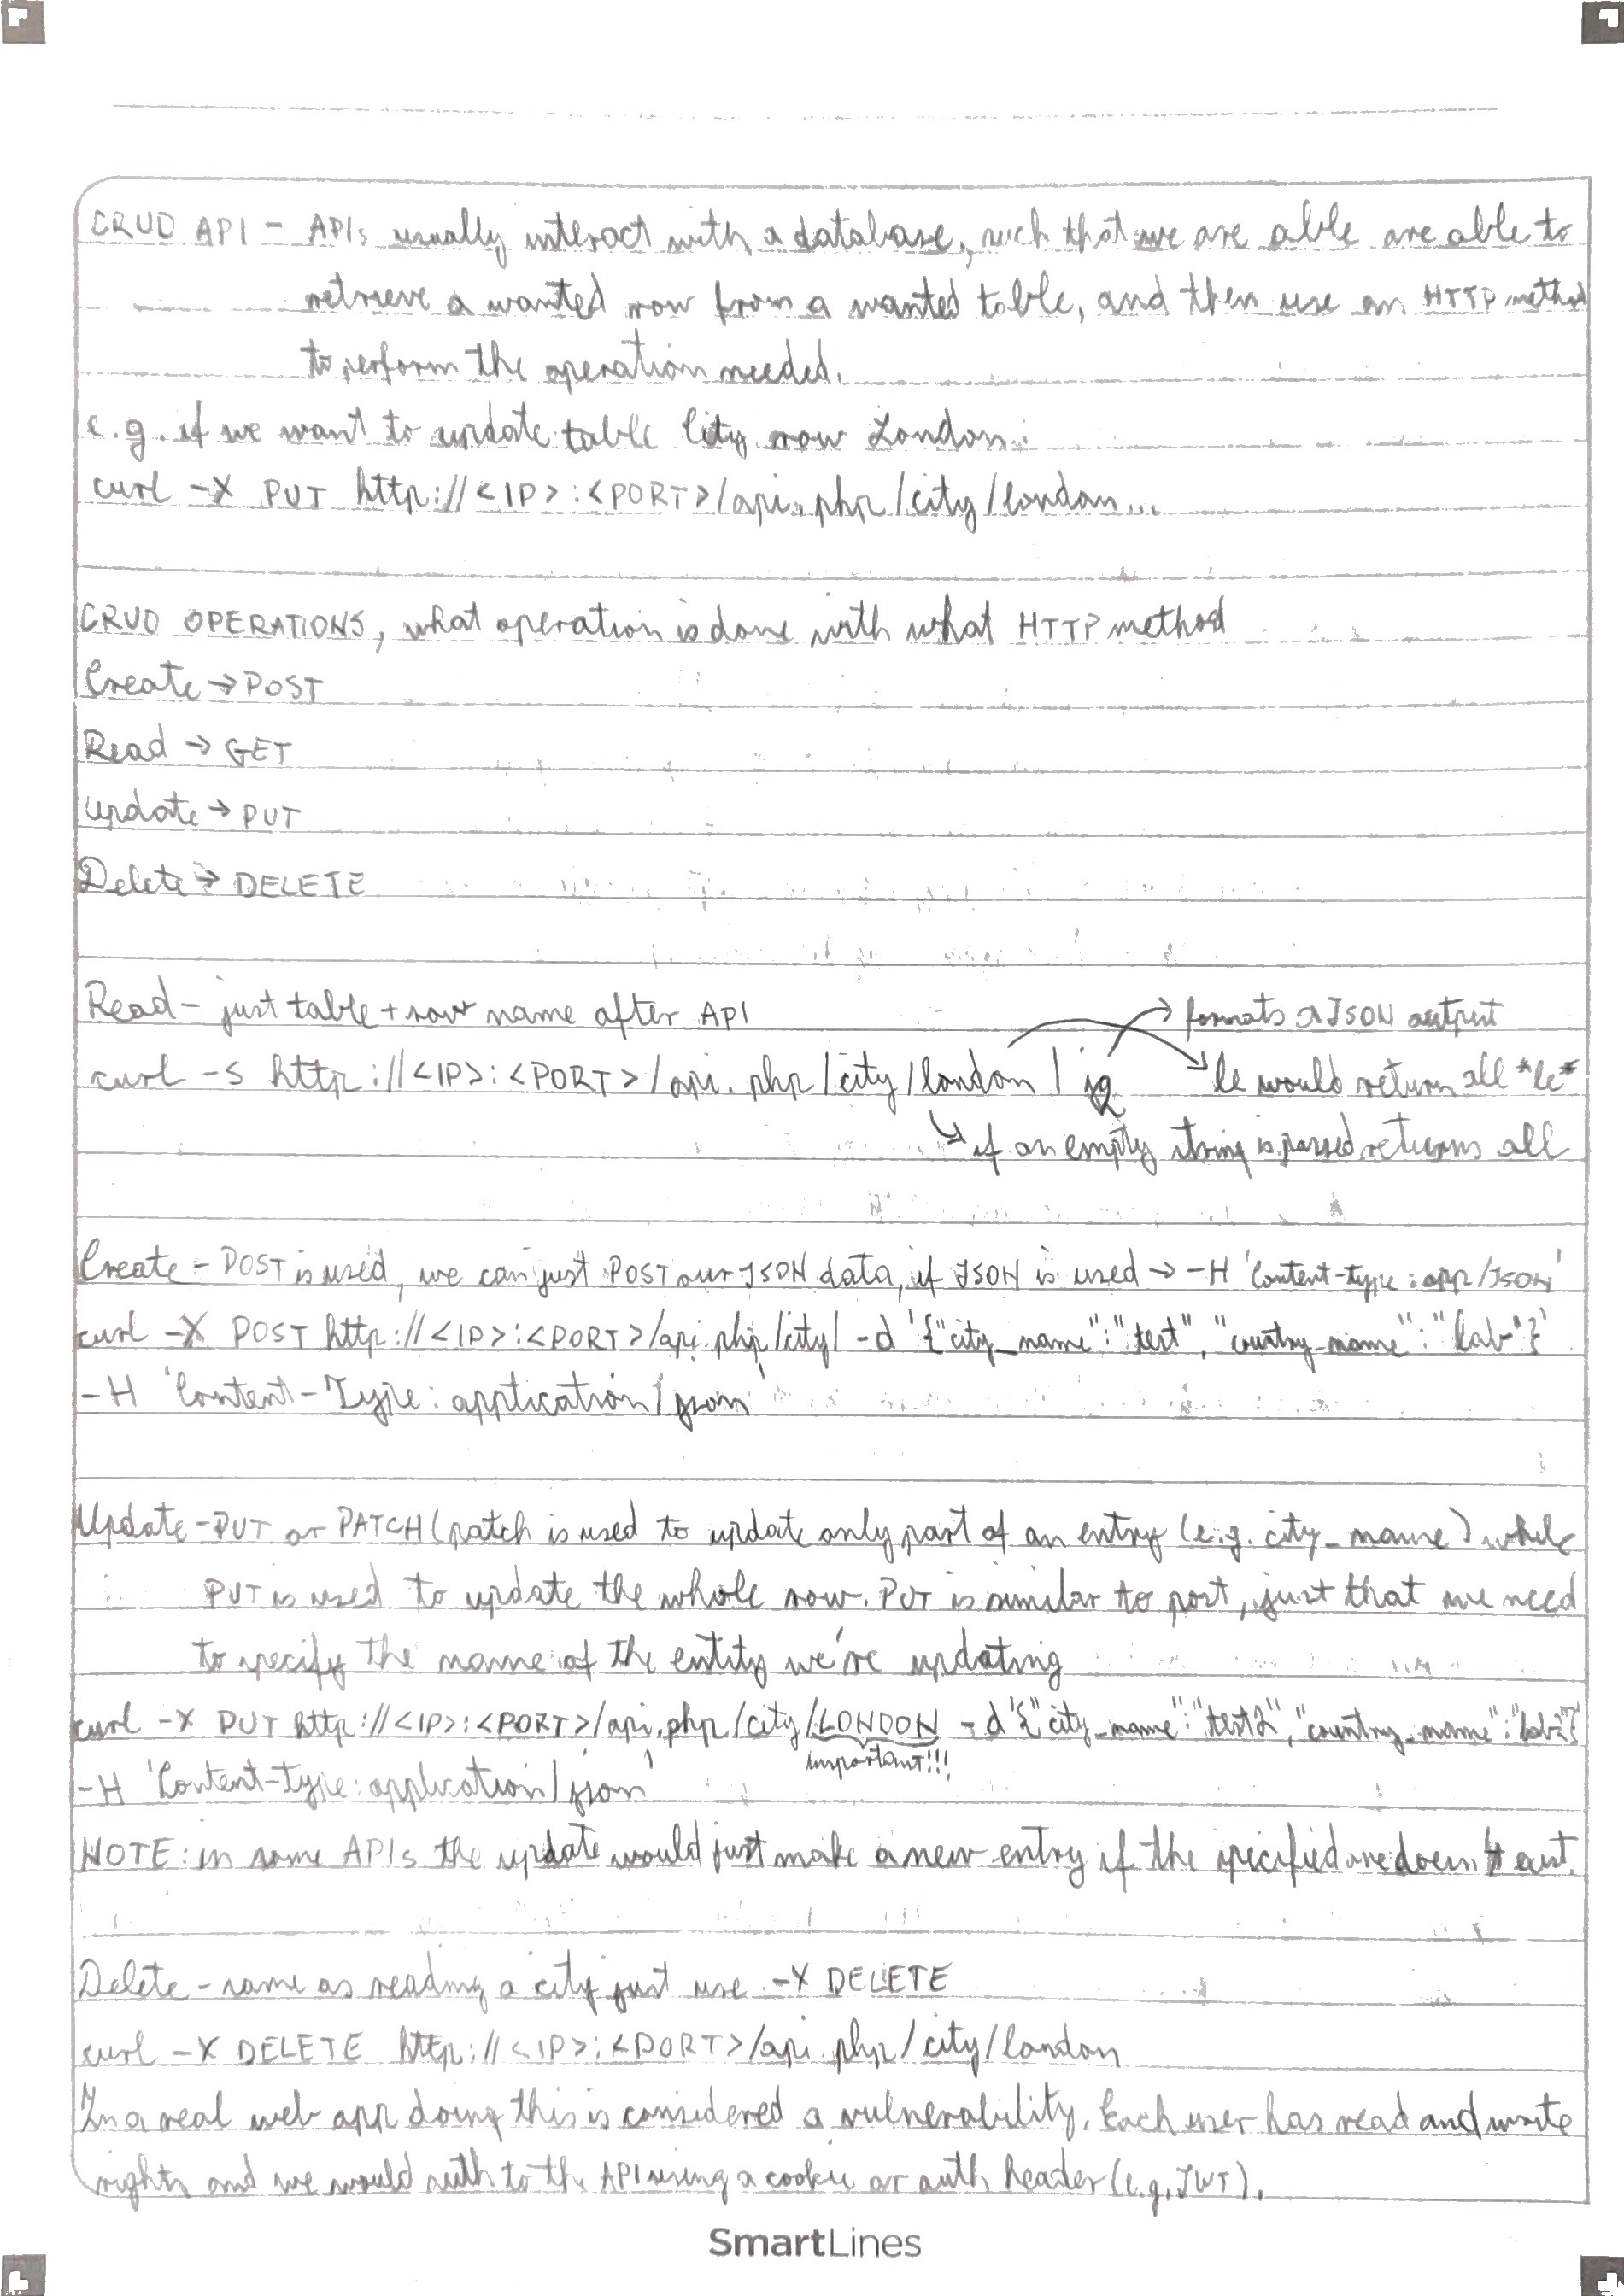 CRUD API – APIs usually interact with a database, such that we are able are able to
retrieve a wanted row from a wanted table, and then use an HTTP method
to perform the operation needed.
e.g. if we want to update table City row London:
curl -X PUT http://<IP>:<PORT>/api.php/city/london...
CRUD OPERATIONS, what operation is done with what HTTP method
Create → POST
Read → GET
update → PUT
Delete → DELETE
Read – just table + row name after API
→ formats a JSON output
curl -s http://<IP>:<PORT>/api.php/city/london | jq
le would return all *le*
if an empty string is passed returns all
Create – POST is used, we can just POST our JSON data, if JSON is used → -H 'Content-type: app/JSON'
curl -X POST http://<IP>:<PORT>/api.php/city/ -d '{"city_name":"test", "country_name":"lab"}'
-H 'Content-Type: application/json'
Update – PUT or PATCH (patch is used to update only part of an entry (e.g. city_name) while
PUT is used to update the whole row. PUT is similar to post, just that we need
to specify the name of the entity we're updating
curl -X PUT http://<IP>:<PORT>/api.php/city/LONDON -d '{"city_name":"test2", "country_name":"lab2"}'
important!!!
-H 'Content-type: application/json'
NOTE: in some APIs the update would just make a new entry if the specified one doesn't exist.
Delete – same as reading a city just use -X DELETE
curl -X DELETE http://<IP>:<PORT>/api.php/city/london
In a real web app doing this is considered a vulnerability. Each user has read and write
rights and we would auth to the API using a cookie or auth header (e.g. JWT).
SmartLines